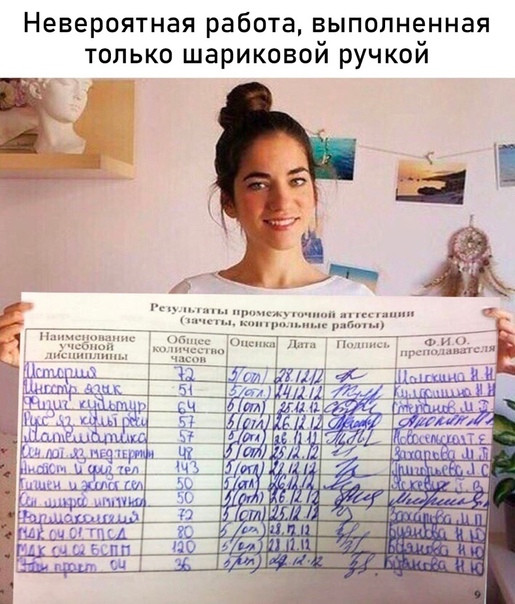 Невероятная работа, выполненная
только шариковой ручкой
Результаты промежуточной аттестации
(зачеты, контрольные работы)
Наименование учебной дисциплины Общее количество часов Оценка Дата Подпись Ф.И.О. преподавателя
История 72 5(отл) 28.12.12
Иностр язык 51 5(отл) 24.12.12
Физич культур 64 5(отл) 25.12.12 Степанов
Рус яз культ речи 57 5(отл) 26.12.12
Математика 57 5(отл) 26.12.12
Осн. лат. яз. мед термин 48 5(отл) 25.12.12 Захарова
Анатом и физ чел 143 5(отл) 22.12.12 Григорьева
Гигиен и эколог чел 50 5(отл)
Осн микроб иммунол 50 5(отл) 26.12.12
Фармакология 72 5(отл) 25.12.12 Захарова
МДК 04 01 ТПСД 80 5(отл) Буянкова Н Ю
МДК 04 02 БСПП 120 5(отл) 28.12.12 Буянкова Н Ю
практ. 04 36 5(отл) 29.12.12 Буянкова Н Ю
9